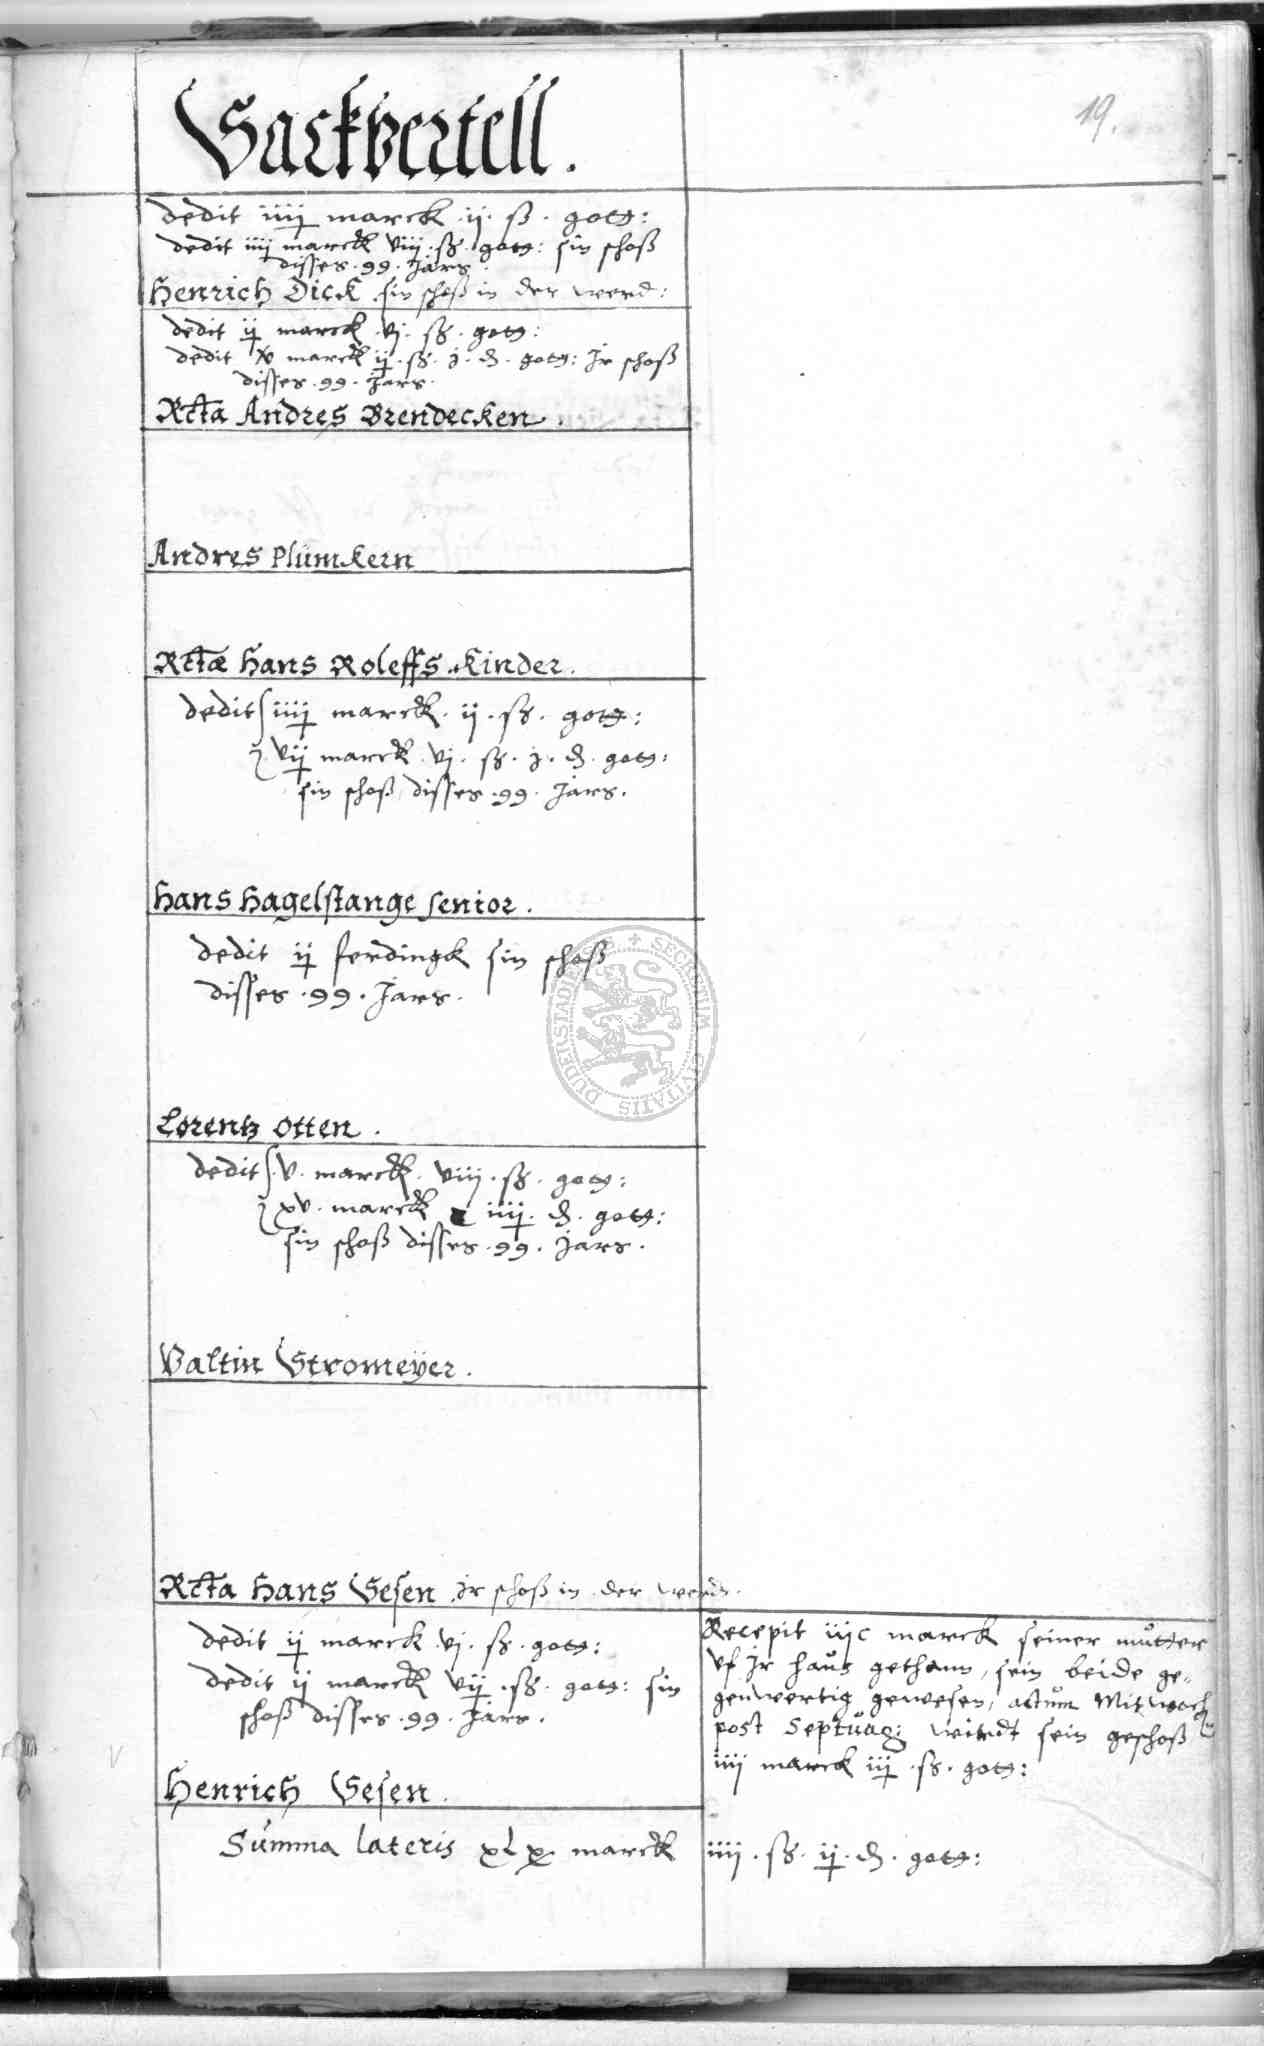 19.
Sackvertell.
dedit iiij marck ij ß gotg:
dedit iiij marck viij ß gotg: sin schoß
disses 99 Jars.
Henrich Dick sin schoß in der werd:
dedit ij marck vj ß gotg:
dedit x marck ij ß j d gotg: Jr schoß
disses 99 Jars.
Rcta Andres Brendecken.
Andres Plümkern
Rctæ Hans Roleffs Kinder.
dedit iiij marck ij ß gotg:
vij marck vj ß j d gotg:
sin schoß disses 99 Jars.
Hans Hagelstange senior.
dedit ij ferdingk sin schoß
disses 99 Jars.
DUDERSTADIENSIS SECRETUM CIVITATIS
Lorentz Otten.
dedit v marck viij ß gotg:
xv marck iiij d gotg:
sin schoß disses 99 Jars.
Valtin Stromeÿer.
Rcta Hans Sesen Jr schoß in der werdr.
dedit ij marck vj ß gotg:
dedit ij marck vij ß gotg: sin
schoß disses 99 Jars.
Henrich Sesen.
Recepit iijc marck seiner mutter
vf Jr haus gethann, sein beide ge-
genwertig gewesen, actum Mitwoch
post Septuag: wirdt sein geschoß
iiij marck iij ß gotg:
Summa lateris marck iiij ß ij d gotg: